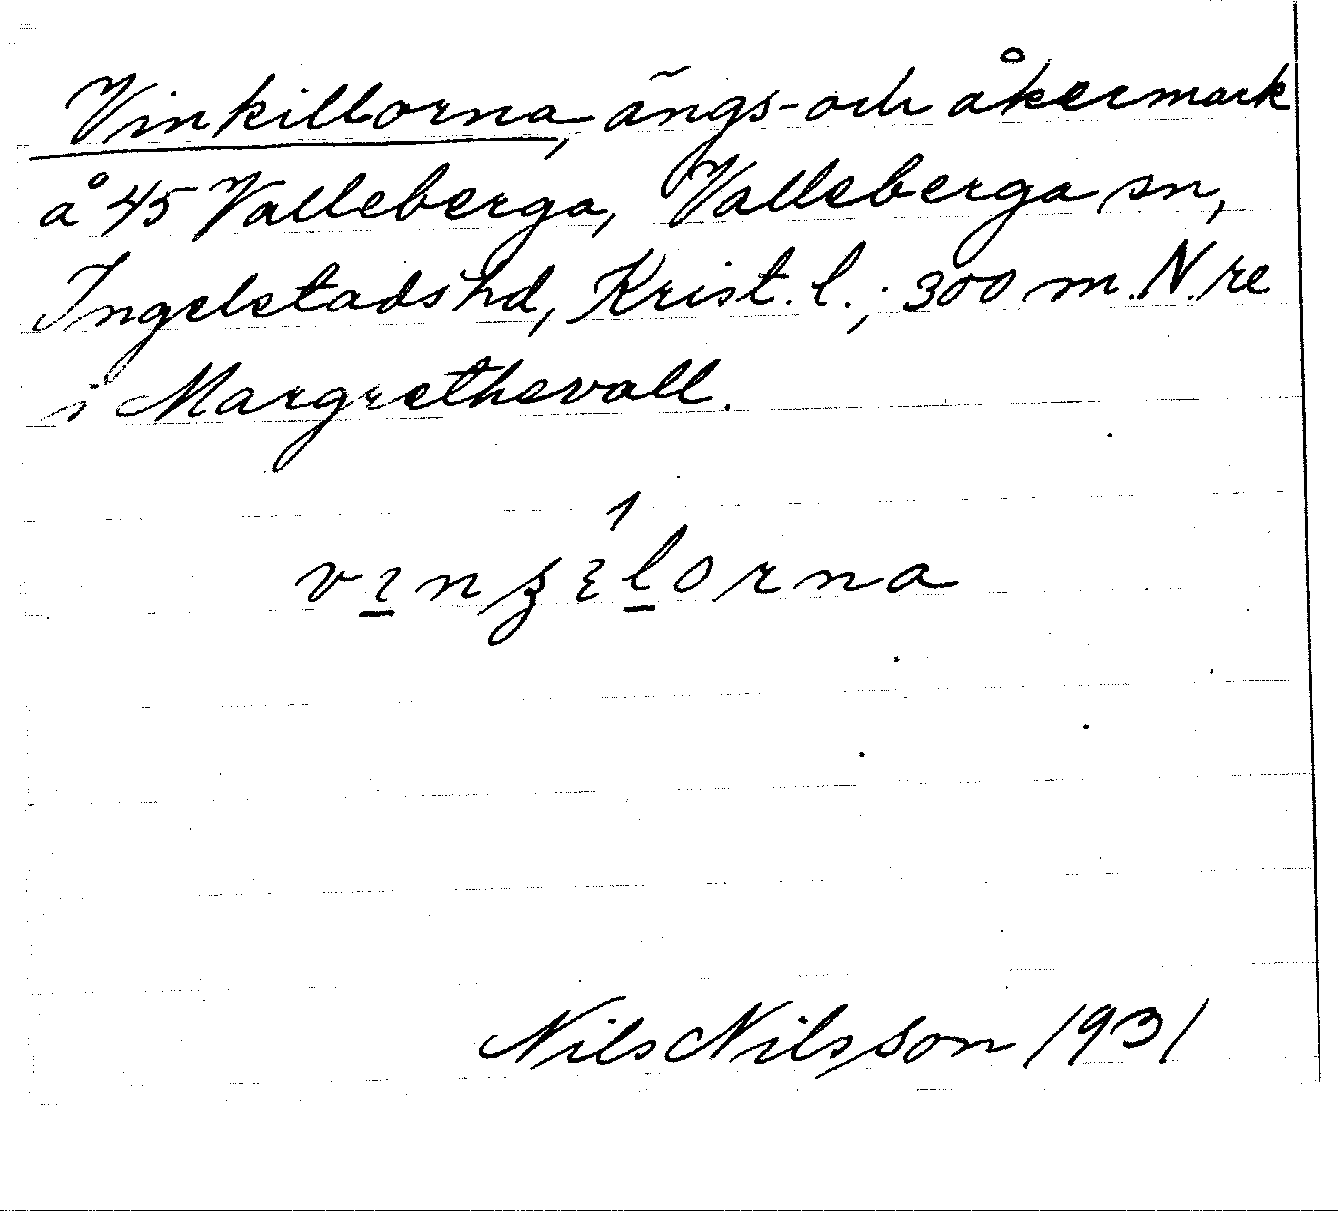 Vinkillorna, ängs- och åkermark
å 45 Valleberga, Valleberga sn,
Ingelstads hd, Krist. l.; 300 m. N. re
i Margrethevall.
Nils Nilsson 1931